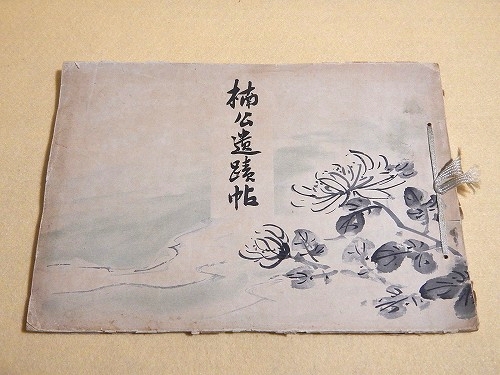 楠公遺蹟帖